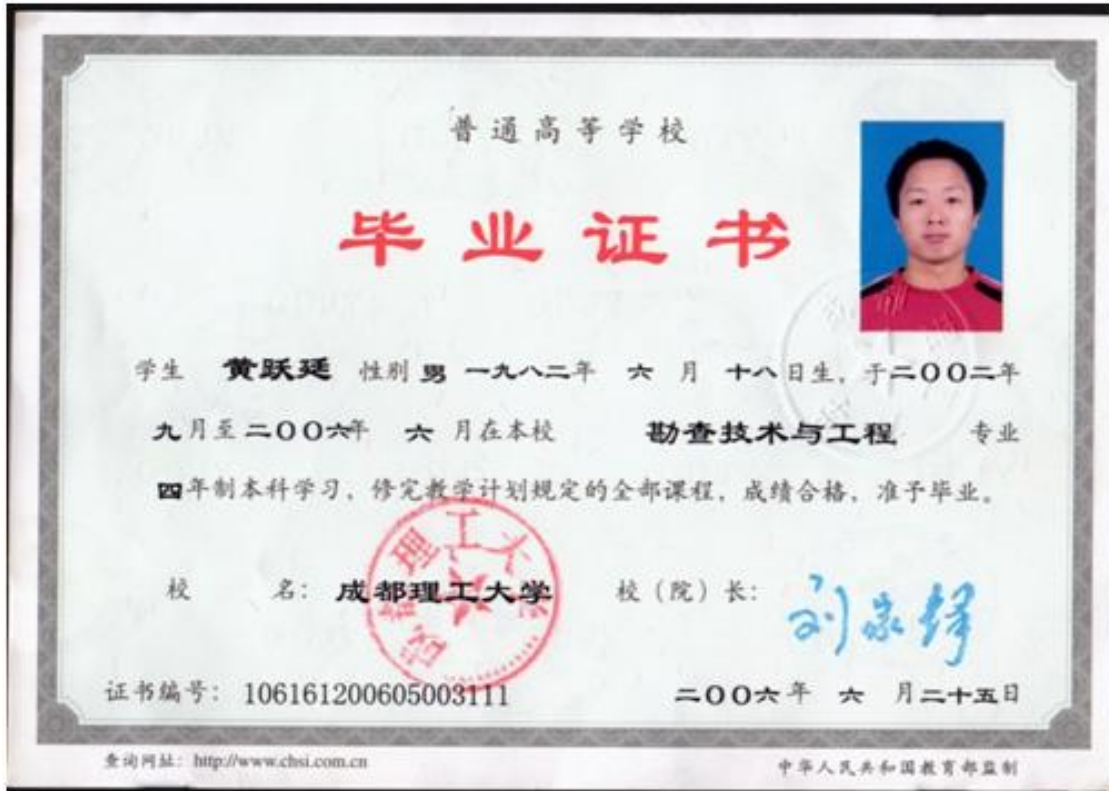 普通高等学校
毕业证书
学生 黄跃廷 性别 男 一九八二年 六 月 十八日生，于二〇〇二年
九月至二〇〇六年 六 月在本校 勘查技术与工程 专业
四年制本科学习，修完教学计划规定的全部课程，成绩合格，准予毕业。
成都理工大学
校 名： 成都理工大学 校（院）长： 刘家铎
证书编号： 106161200605003111 二〇〇六年 六 月二十五日
查询网址：http://www.chsi.com.cn 中华人民共和国教育部监制